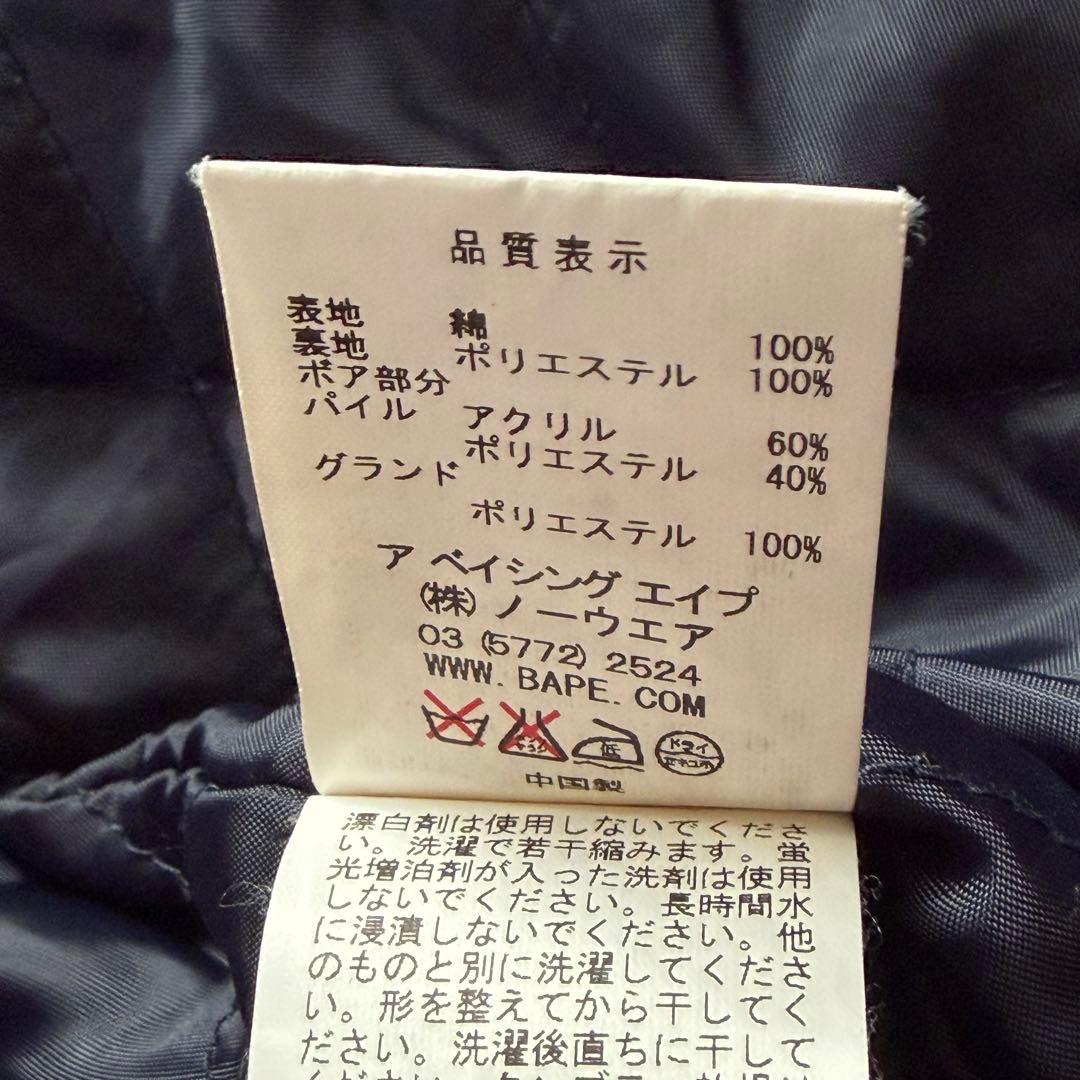 品質表示
表地 綿 100%
裏地 ポリエステル 100%
ボア部分
パイル アクリル 60%
ポリエステル 40%
グランド
ポリエステル 100%
ア ベイシング エイプ
(株) ノーウエア
03 (5772) 2524
WWW. BAPE. COM
低 ドライ
中国製
漂白剤は使用しないでくださ
い。洗濯で若干縮みます。蛍
光増泊剤が入った洗剤は使用
しないでください。長時間水
に浸漬しないでください。他
のものと別に洗濯してくださ
い。形を整えてから干してく
ださい。洗濯後直ちに干して